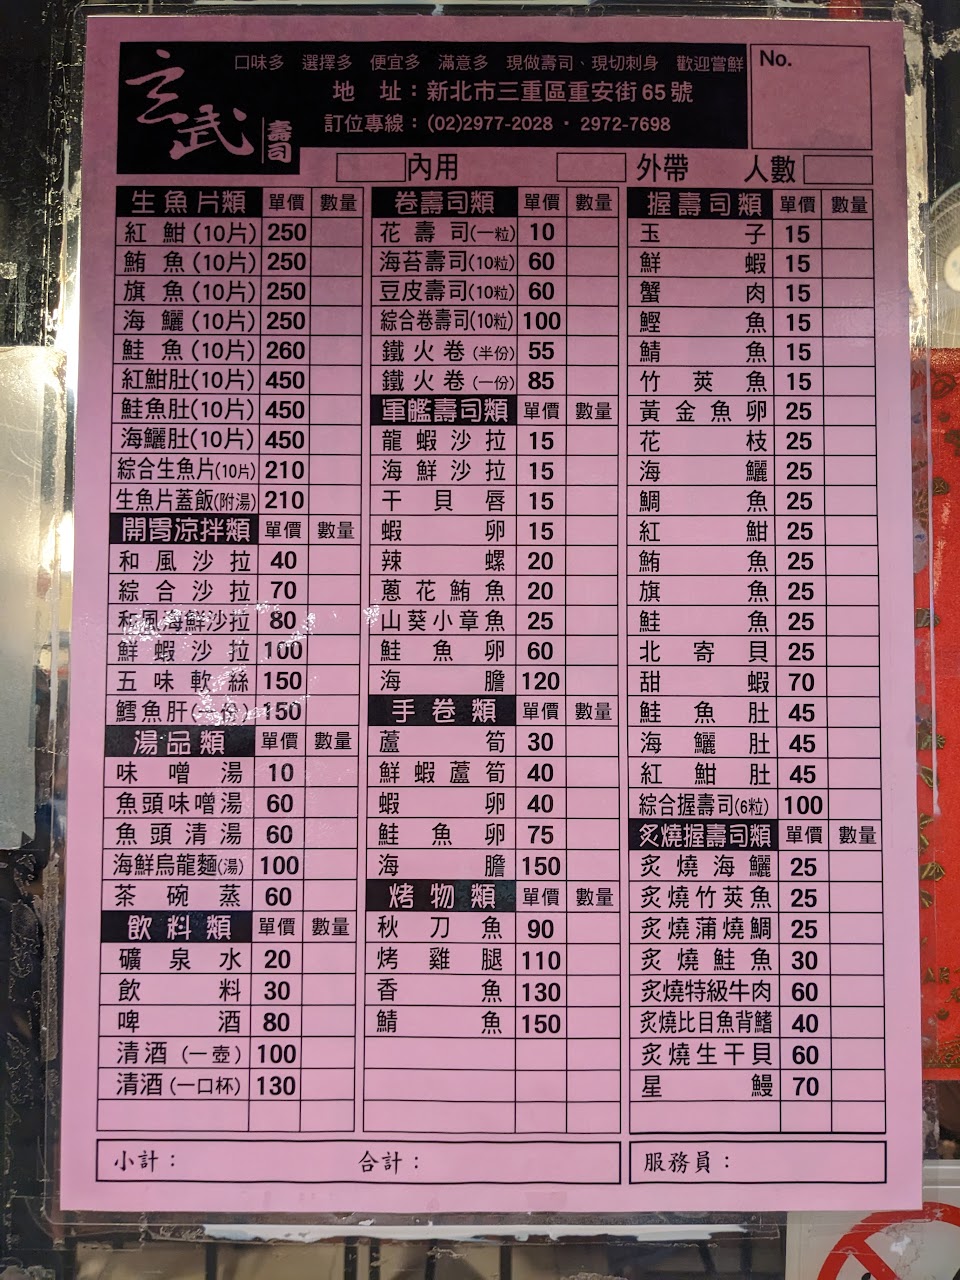 玄武
壽司
口味多 選擇多 便宜多 滿意多 現做壽司、現切刺身 歡迎嘗鮮
地 址：新北市三重區重安街65號
訂位專線：(02)2977-2028 · 2972-7698
No.
內用 外帶 人數
生魚片類 單價 數量
紅魽(10片) 250
鮪魚(10片) 250
旗魚(10片) 250
海鱺(10片) 250
鮭魚(10片) 260
紅魽肚(10片) 450
鮭魚肚(10片) 450
海鱺肚(10片) 450
綜合生魚片(10片) 210
生魚片蓋飯(附湯) 210
開胃涼拌類 單價 數量
和風沙拉 40
綜合沙拉 70
和風海鮮沙拉 80
鮮蝦沙拉 100
五味軟絲 150
鱈魚肝(一份) 150
湯品類 單價 數量
味噌湯 10
魚頭味噌湯 60
魚頭清湯 60
海鮮烏龍麵(湯) 100
茶碗蒸 60
飲料類 單價 數量
礦泉水 20
飲料 30
啤酒 80
清酒(一壺) 100
清酒(一口杯) 130
卷壽司類 單價 數量
花壽司(一粒) 10
海苔壽司(10粒) 60
豆皮壽司(10粒) 60
綜合卷壽司(10粒) 100
鐵火卷(半份) 55
鐵火卷(一份) 85
軍艦壽司類 單價 數量
龍蝦沙拉 15
海鮮沙拉 15
干貝唇 15
蝦卵 15
辣螺 20
蔥花鮪魚 20
山葵小章魚 25
鮭魚卵 60
海膽 120
手卷類 單價 數量
蘆筍 30
鮮蝦蘆筍 40
蝦卵 40
鮭魚卵 75
海膽 150
烤物類 單價 數量
秋刀魚 90
烤雞腿 110
香魚 130
鯖魚 150
握壽司類 單價 數量
玉子 15
鮮蝦 15
蟹肉 15
鰹魚 15
鯖魚 15
竹莢魚 15
黃金魚卵 25
花枝 25
海鱺 25
鯛魚 25
紅魽 25
鮪魚 25
旗魚 25
鮭魚 25
北寄貝 25
甜蝦 70
鮭魚肚 45
海鱺肚 45
紅魽肚 45
綜合握壽司(6粒) 100
炙燒握壽司類 單價 數量
炙燒海鱺 25
炙燒竹莢魚 25
炙燒蒲燒鯛 25
炙燒鮭魚 30
炙燒特級牛肉 60
炙燒比目魚背鰭 40
炙燒生干貝 60
星鰻 70
小計： 合計： 服務員：